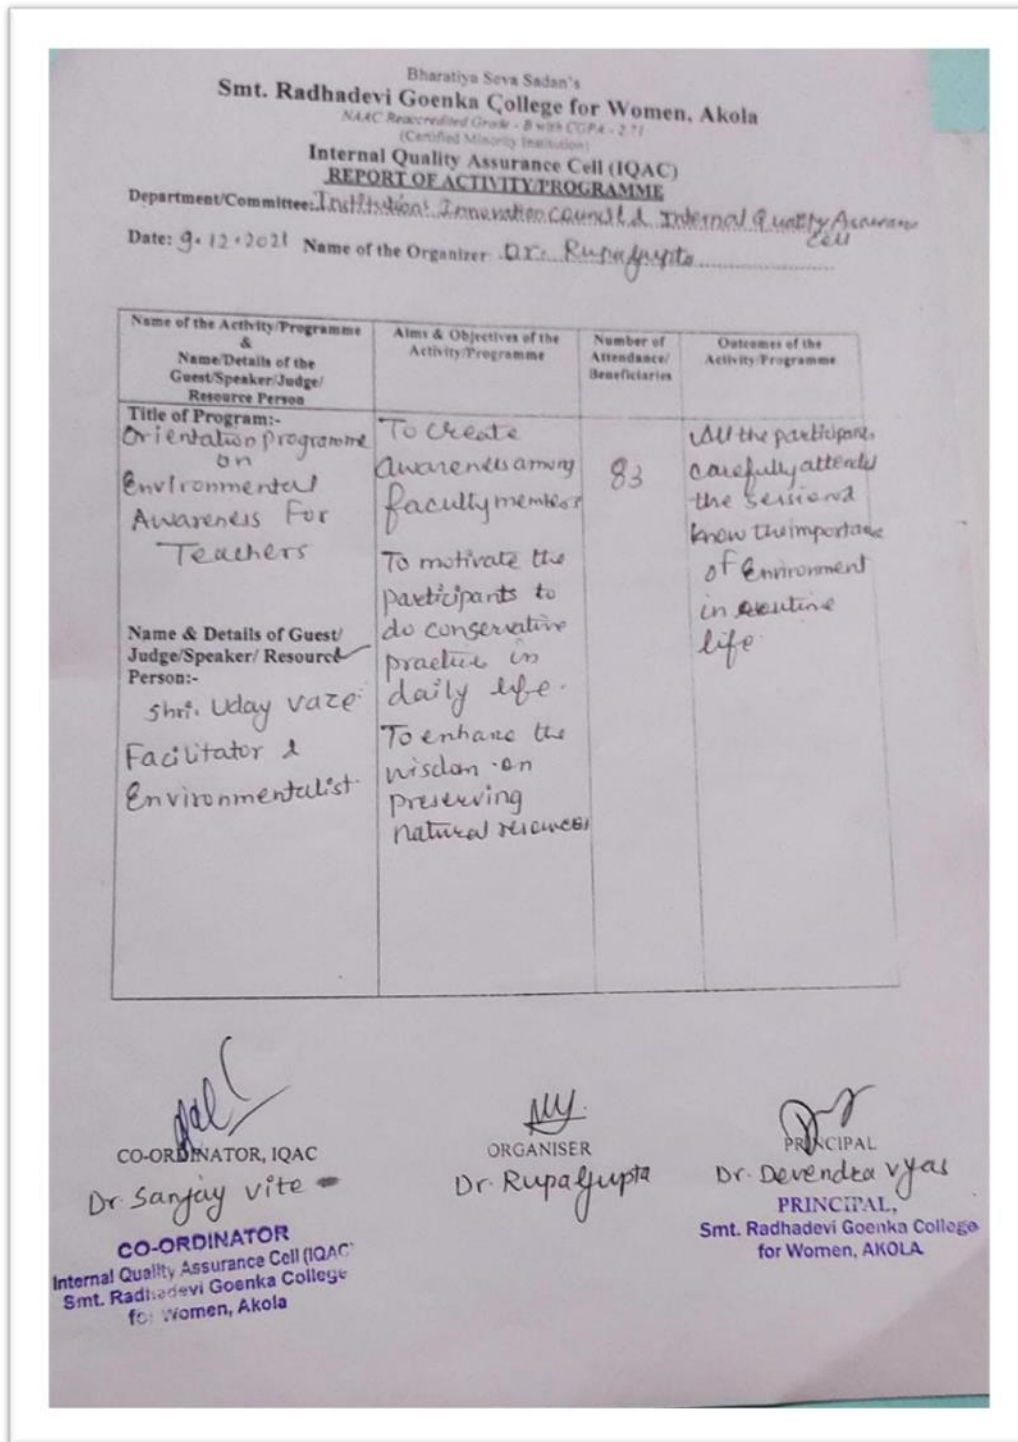 Bharatiya Seva Sadan's
Smt. Radhadevi Goenka College for Women, Akola
NAAC Reaccredited Grade - B with CGPA - 2.71
(Certified Minority Institution)
Internal Quality Assurance Cell (IQAC)
REPORT OF ACTIVITY/PROGRAMME
Department/Committee: Institution's Innovation Council & Internal Quality Assurance
Cell
Date: 9.12.2021 Name of the Organizer: Dr. Rupa Gupta
Name of the Activity/Programme
&
Name/Details of the
Guest/Speaker/Judge/
Resource Person
Aims & Objectives of the
Activity/Programme
Number of
Attendance/
Beneficiaries
Outcomes of the
Activity/Programme
Title of Program:-
Orientation Programme
on
Environmental
Awareness For
Teachers
Name & Details of Guest/
Judge/Speaker/ Resource
Person:-
Shri. Uday Vaze
Facilitator &
Environmentalist.
To create
awareness among
faculty members
To motivate the
participants to
do conservative
practice in
daily life.
To enhance the
wisdom on
preserving
natural resources
83
All the participants
carefully attended
the session &
know the importance
of Environment
in routine
life.
CO-ORDINATOR, IQAC
Dr. Sanjay Vite
CO-ORDINATOR
Internal Quality Assurance Cell (IQAC)
Smt. Radhadevi Goenka College
for Women, Akola
ORGANISER
Dr. Rupa Gupta
PRINCIPAL
Dr. Devendra Vyas
PRINCIPAL,
Smt. Radhadevi Goenka College
for Women, AKOLA